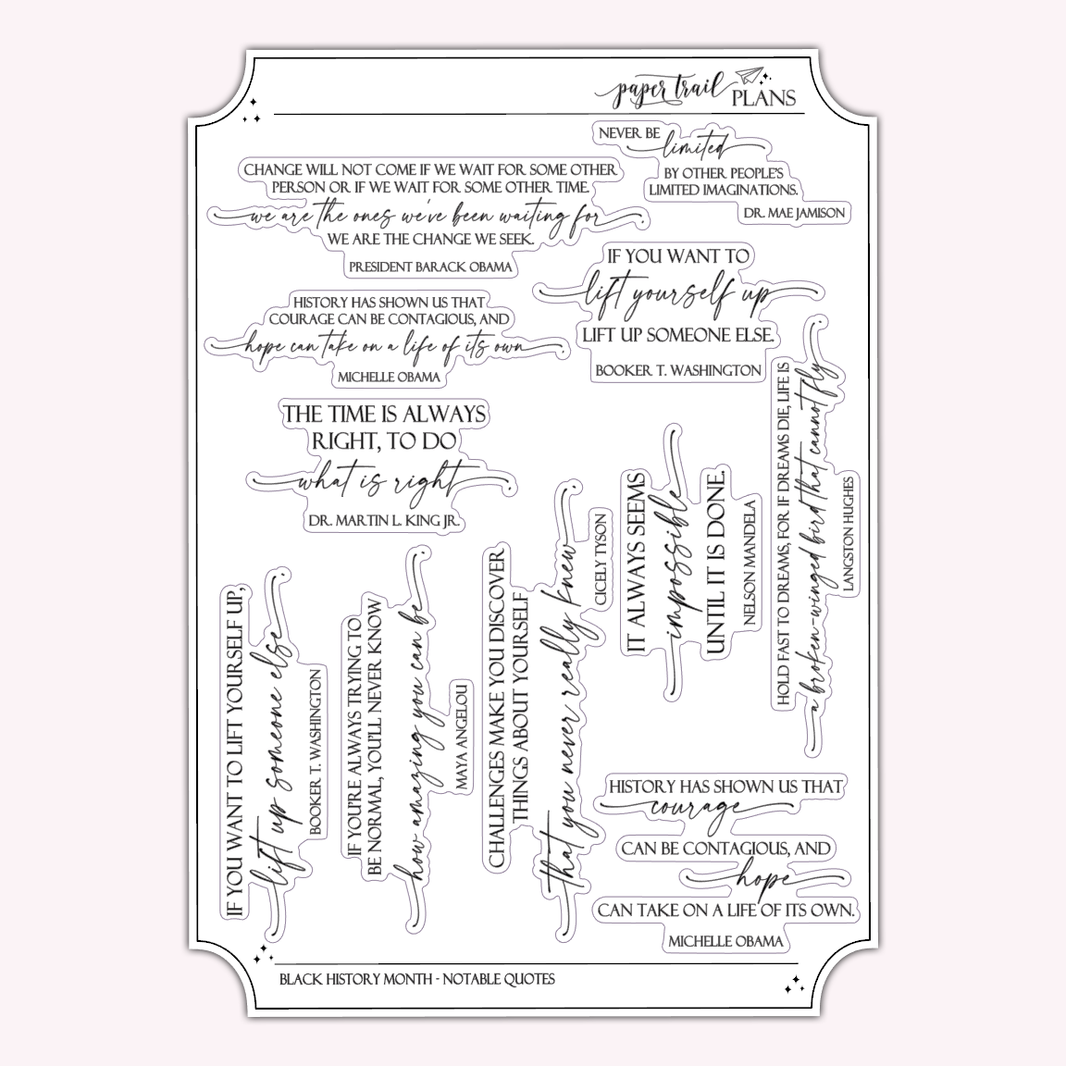 paper trail PLANS
NEVER BE
limited
BY OTHER PEOPLE'S
LIMITED IMAGINATIONS.
DR. MAE JAMISON
CHANGE WILL NOT COME IF WE WAIT FOR SOME OTHER
PERSON OR IF WE WAIT FOR SOME OTHER TIME.
we are the ones we've been waiting for
WE ARE THE CHANGE WE SEEK.
PRESIDENT BARACK OBAMA
IF YOU WANT TO
lift yourself up
LIFT UP SOMEONE ELSE.
BOOKER T. WASHINGTON
HISTORY HAS SHOWN US THAT
COURAGE CAN BE CONTAGIOUS, AND
hope can take on a life of its own
MICHELLE OBAMA
THE TIME IS ALWAYS
RIGHT, TO DO
what is right
DR. MARTIN L. KING JR.
HOLD FAST TO DREAMS, FOR IF DREAMS DIE, LIFE IS
a broken-winged bird that cannot fly
LANGSTON HUGHES
IT ALWAYS SEEMS
impossible
UNTIL IT IS DONE.
NELSON MANDELA
CHALLENGES MAKE YOU DISCOVER
THINGS ABOUT YOURSELF
that you never really knew
CICELY TYSON
IF YOU'RE ALWAYS TRYING TO
BE NORMAL, YOU'LL NEVER KNOW
how amazing you can be
MAYA ANGELOU
IF YOU WANT TO LIFT YOURSELF UP,
lift up someone else
BOOKER T. WASHINGTON
HISTORY HAS SHOWN US THAT
courage
CAN BE CONTAGIOUS, AND
hope
CAN TAKE ON A LIFE OF ITS OWN.
MICHELLE OBAMA
BLACK HISTORY MONTH - NOTABLE QUOTES